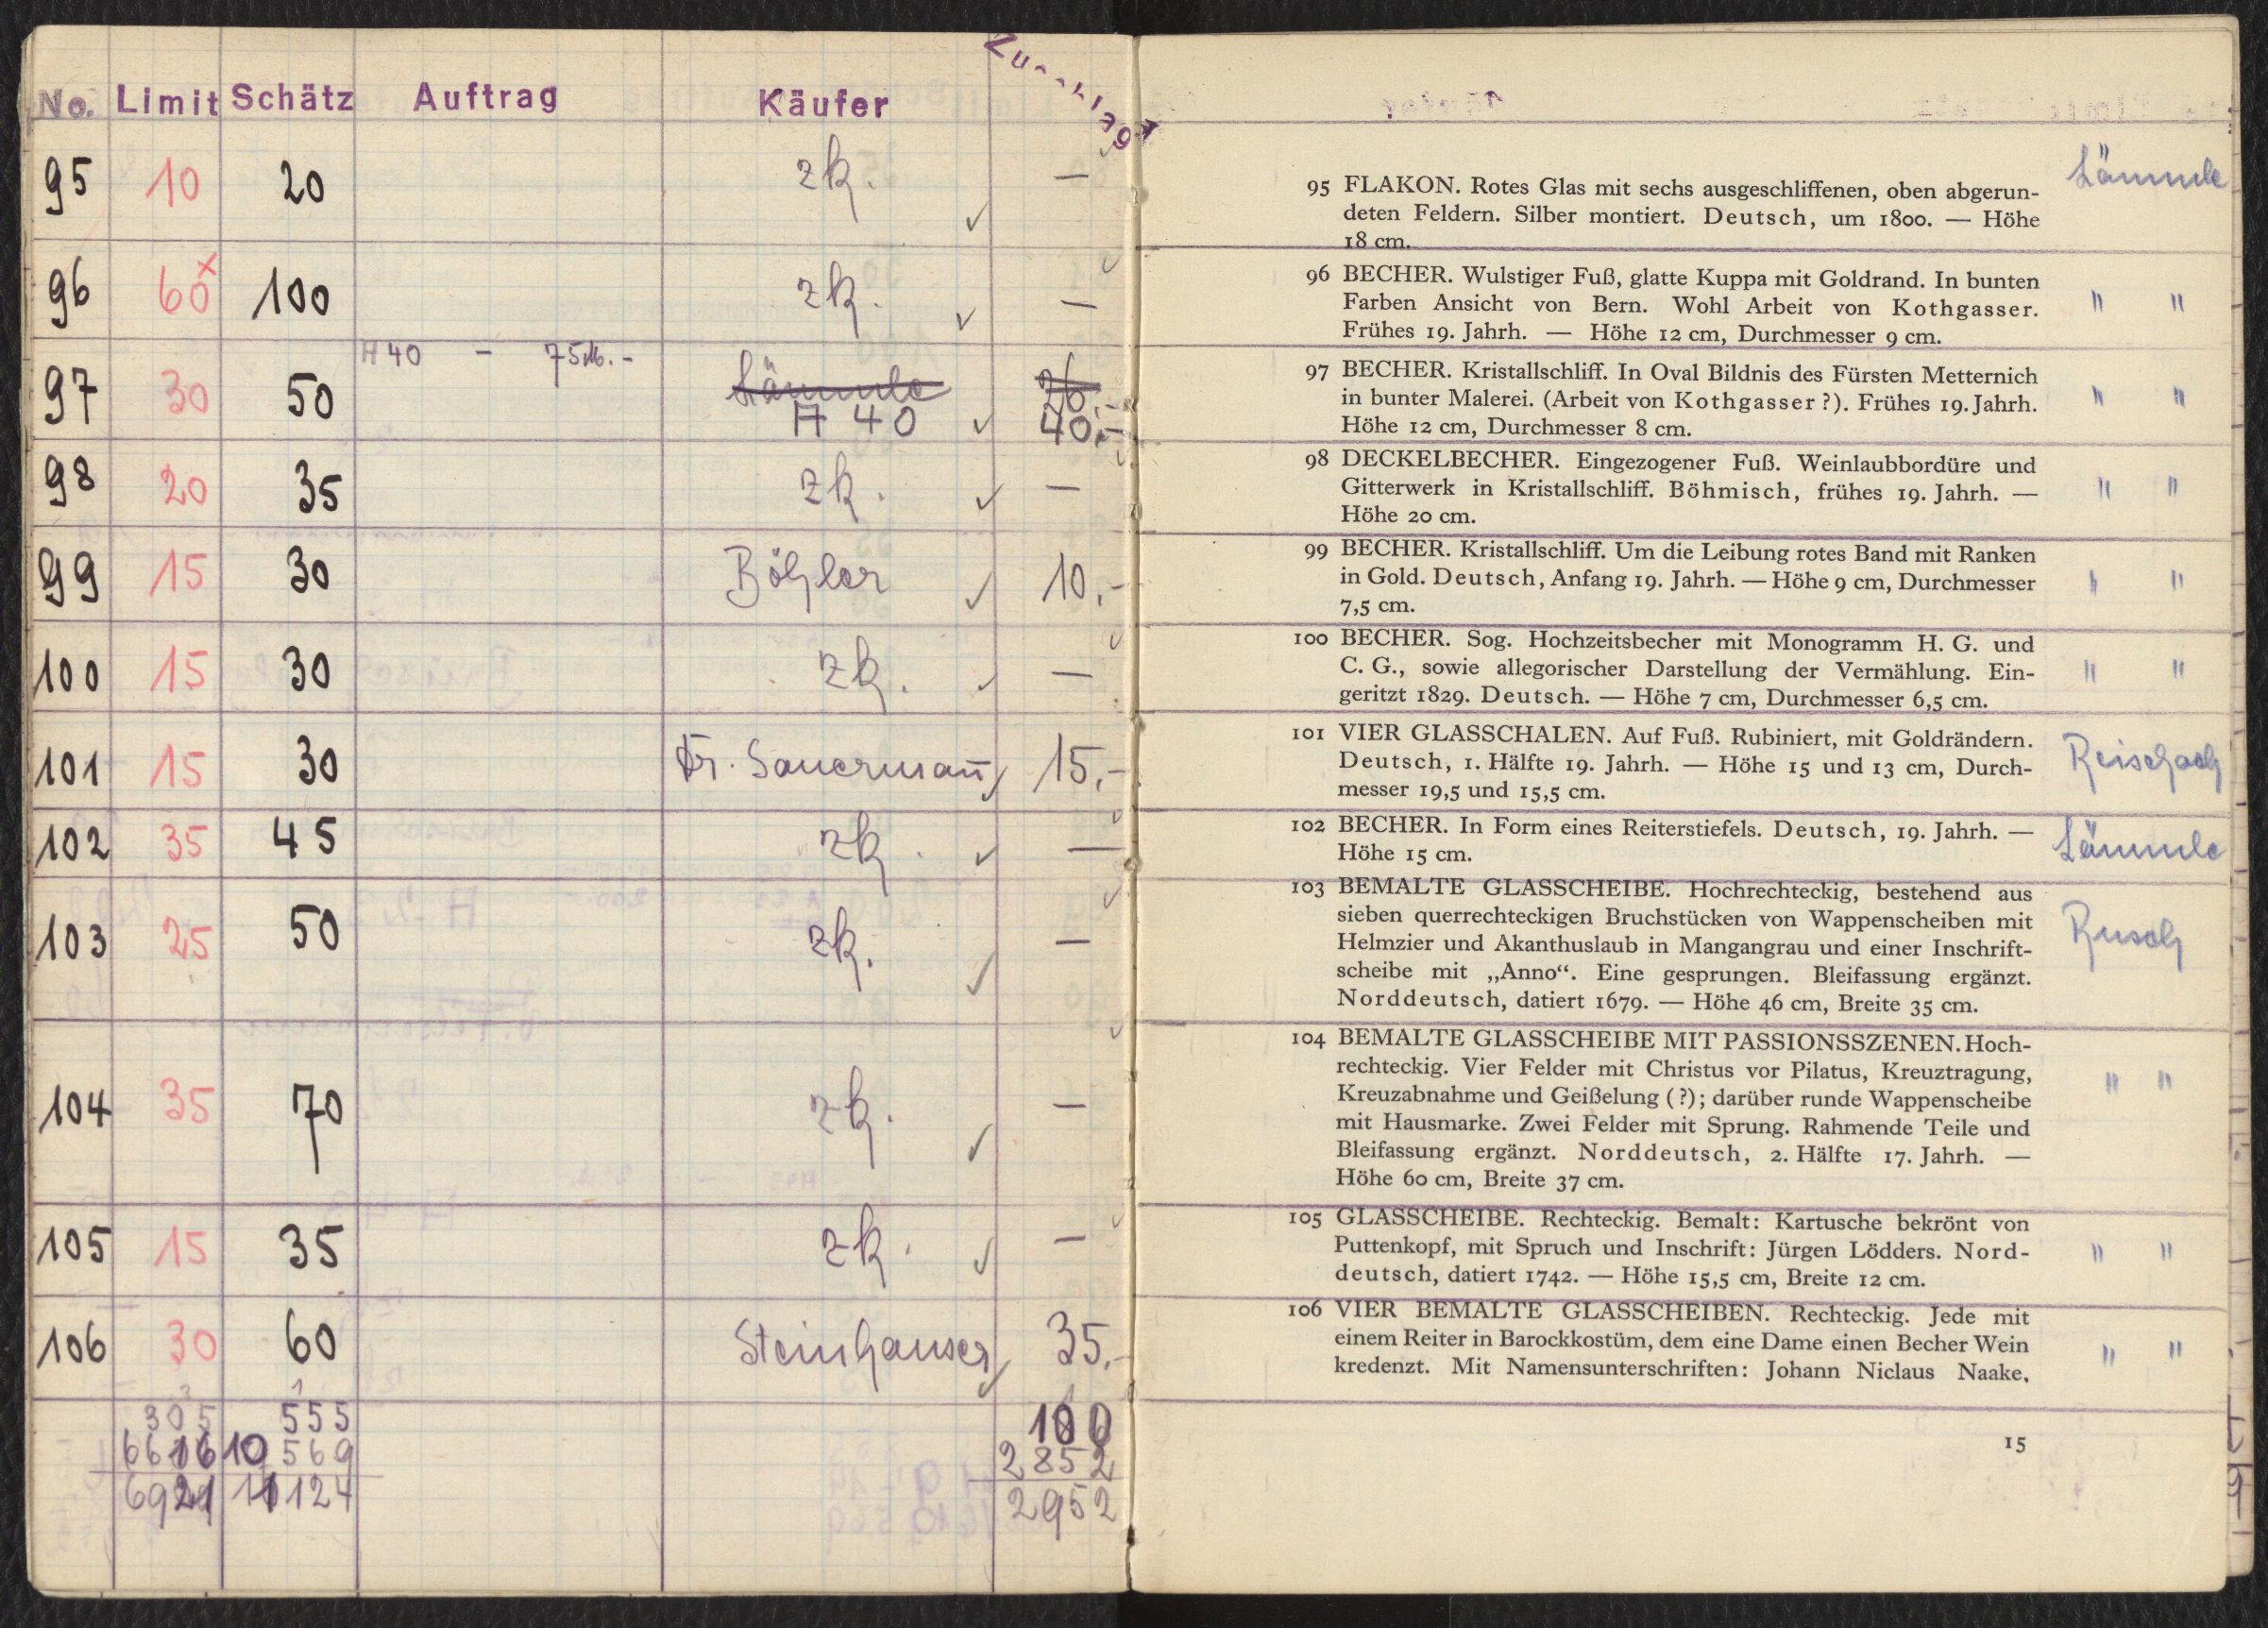 No. Limit Schätz Auftrag Käufer Zuschlag
95 10 20 zk. —
96 60 x 100 zk. —
H 40 — 75 M. -
97 30 50 Lämmle 26.-
H 40 40.-
98 20 35 zk. —
99 15 30 Böhler 10.-
100 15 30 zk. —
101 15 30 Dr. Sauermann 15.-
102 35 45 zk. —
103 25 50 zk. —
104 35 70 zk. —
105 15 35 zk. —
106 30 60 Steinhauser 35.-
305 555 100
6616 10 569 2852
6921 11 124 2952
95 FLAKON. Rotes Glas mit sechs ausgeschliffenen, oben abgerun- Lämmle
deten Feldern. Silber montiert. Deutsch, um 1800. — Höhe
18 cm.
96 BECHER. Wulstiger Fuß, glatte Kuppa mit Goldrand. In bunten
Farben Ansicht von Bern. Wohl Arbeit von Kothgasser. " "
Frühes 19. Jahrh. — Höhe 12 cm, Durchmesser 9 cm.
97 BECHER. Kristallschliff. In Oval Bildnis des Fürsten Metternich
in bunter Malerei. (Arbeit von Kothgasser ?). Frühes 19. Jahrh. " "
Höhe 12 cm, Durchmesser 8 cm.
98 DECKELBECHER. Eingezogener Fuß. Weinlaubbordüre und
Gitterwerk in Kristallschliff. Böhmisch, frühes 19. Jahrh. — " "
Höhe 20 cm.
99 BECHER. Kristallschliff. Um die Leibung rotes Band mit Ranken
in Gold. Deutsch, Anfang 19. Jahrh. — Höhe 9 cm, Durchmesser " "
7,5 cm.
100 BECHER. Sog. Hochzeitsbecher mit Monogramm H. G. und
C. G., sowie allegorischer Darstellung der Vermählung. Ein- " "
geritzt 1829. Deutsch. — Höhe 7 cm, Durchmesser 6,5 cm.
101 VIER GLASSCHALEN. Auf Fuß. Rubiniert, mit Goldrändern.
Deutsch, 1. Hälfte 19. Jahrh. — Höhe 15 und 13 cm, Durch- Reischach
messer 19,5 und 15,5 cm.
102 BECHER. In Form eines Reiterstiefels. Deutsch, 19. Jahrh. — Lämmle
Höhe 15 cm.
103 BEMALTE GLASSCHEIBE. Hochrechteckig, bestehend aus
sieben querrechteckigen Bruchstücken von Wappenscheiben mit Rusch
Helmzier und Akanthuslaub in Mangangrau und einer Inschrift-
scheibe mit „Anno“. Eine gesprungen. Bleifassung ergänzt.
Norddeutsch, datiert 1679. — Höhe 46 cm, Breite 35 cm.
104 BEMALTE GLASSCHEIBE MIT PASSIONSSZENEN. Hoch-
rechteckig. Vier Felder mit Christus vor Pilatus, Kreuztragung, " "
Kreuzabnahme und Geißelung (?); darüber runde Wappenscheibe
mit Hausmarke. Zwei Felder mit Sprung. Rahmende Teile und
Bleifassung ergänzt. Norddeutsch, 2. Hälfte 17. Jahrh. —
Höhe 60 cm, Breite 37 cm.
105 GLASSCHEIBE. Rechteckig. Bemalt: Kartusche bekrönt von
Puttenkopf, mit Spruch und Inschrift: Jürgen Lödders. Nord- " "
deutsch, datiert 1742. — Höhe 15,5 cm, Breite 12 cm.
106 VIER BEMALTE GLASSCHEIBEN. Rechteckig. Jede mit
einem Reiter in Barockkostüm, dem eine Dame einen Becher Wein " "
kredenzt. Mit Namensunterschriften: Johann Niclaus Naake,
15